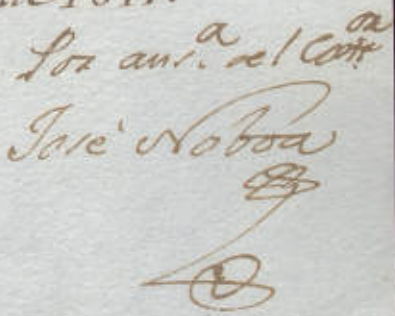 Por aus.ª del Cont.ºʳ
José Noboa